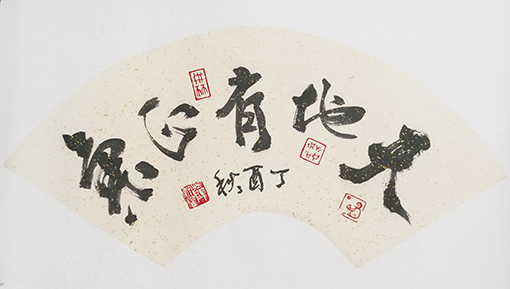 天地有正氣
丁酉秋